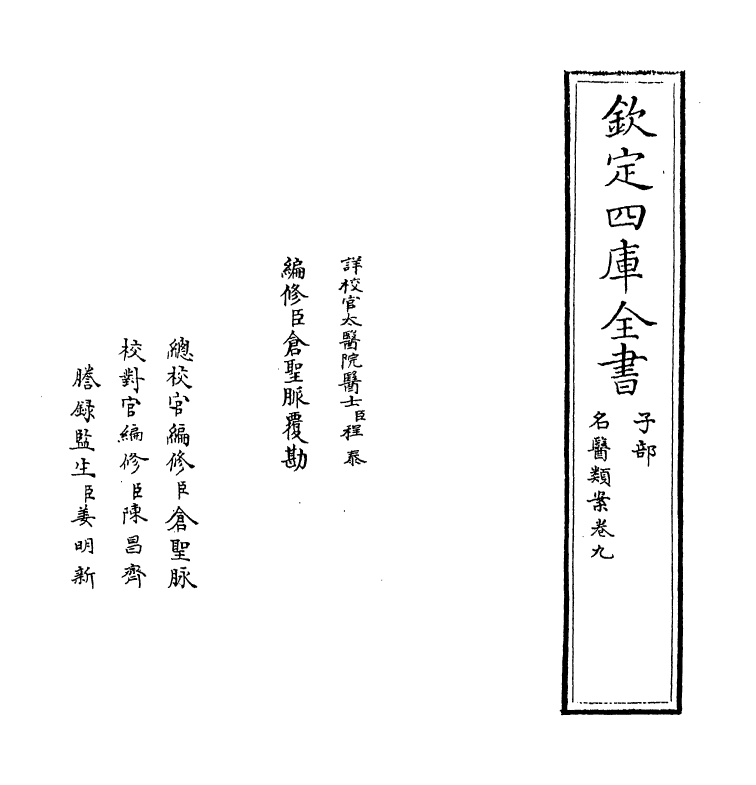 欽定四庫全書
子部
名醫類案卷九
詳校官太醫院醫士臣程泰
編修臣倉聖脈覆勘
總校官編修臣倉聖脉
校對官編修臣陳昌齊
謄録監生臣姜明新